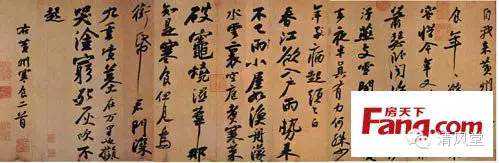 自我來黃州
食年
容惜今年又
蕭瑟臥聞海
汙燕支雪闇
去夜半真有力何殊
年子病起頭已白
春江欲入戶雨勢來
不已雨小屋如漁舟濛濛
水雲裏空庖煮寒菜
破竈燒濕葦那
知是寒食但見烏
銜帋君門深
九重墳墓在万里也擬
哭塗窮死灰吹不
起
右黃州寒食二首
房天下
Fang.com
清风堂